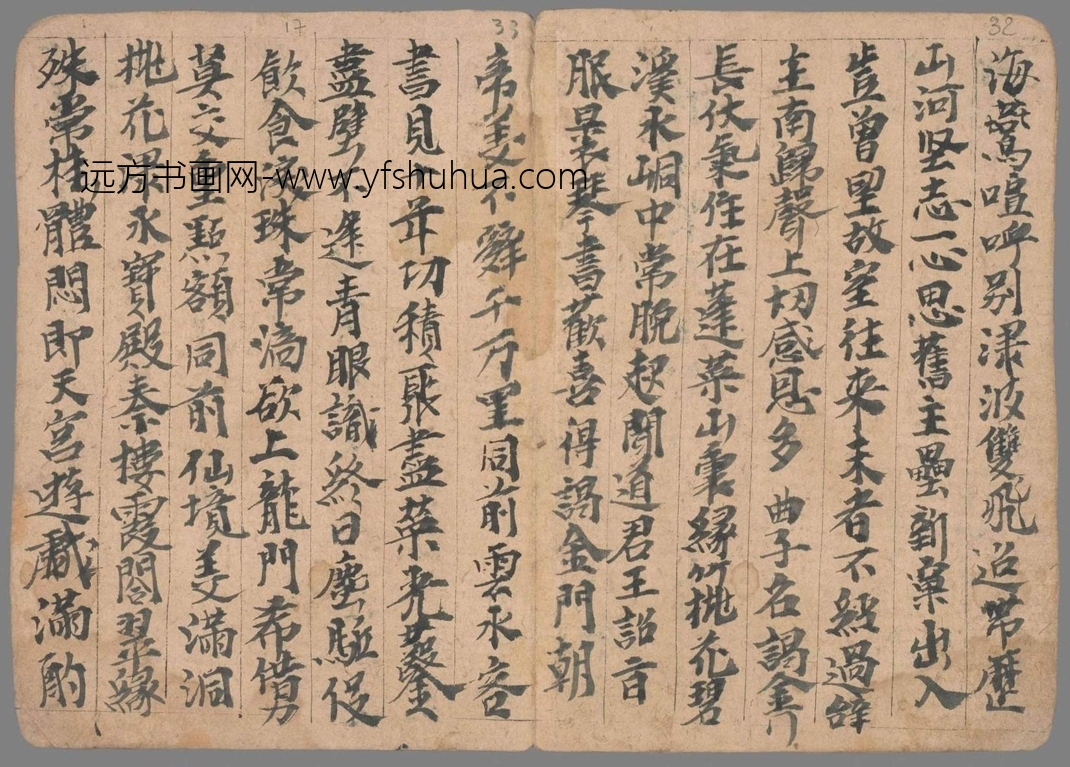 32
海鷰喧呼別淥波雙飛迢帶歷
山河坚志一心思舊主壘新窠出入
豈曾望故室往來未者不經過辞
主南歸聲上切感恩多 曲子名謁金門
長伏氣住在蓬萊山裏緑竹桃花碧
溪水峒中常晚起聞道君王詔旨
服裹琴書歡喜得謁金門朝
33
帝美不辭千万里同前雲水客
書見十年功積聚盡葉光鑿
17
盡壁不逢青眼識終日塵駈役
飲食淚珠常滴欲上龍門希借力
莫交重點額同前仙境美滿洞
桃花淥水寶殿秦樓霞閣翠緑
殊常桂體悶即天宮遊戲滿酌
远方书画网-www.yfshuhua.com